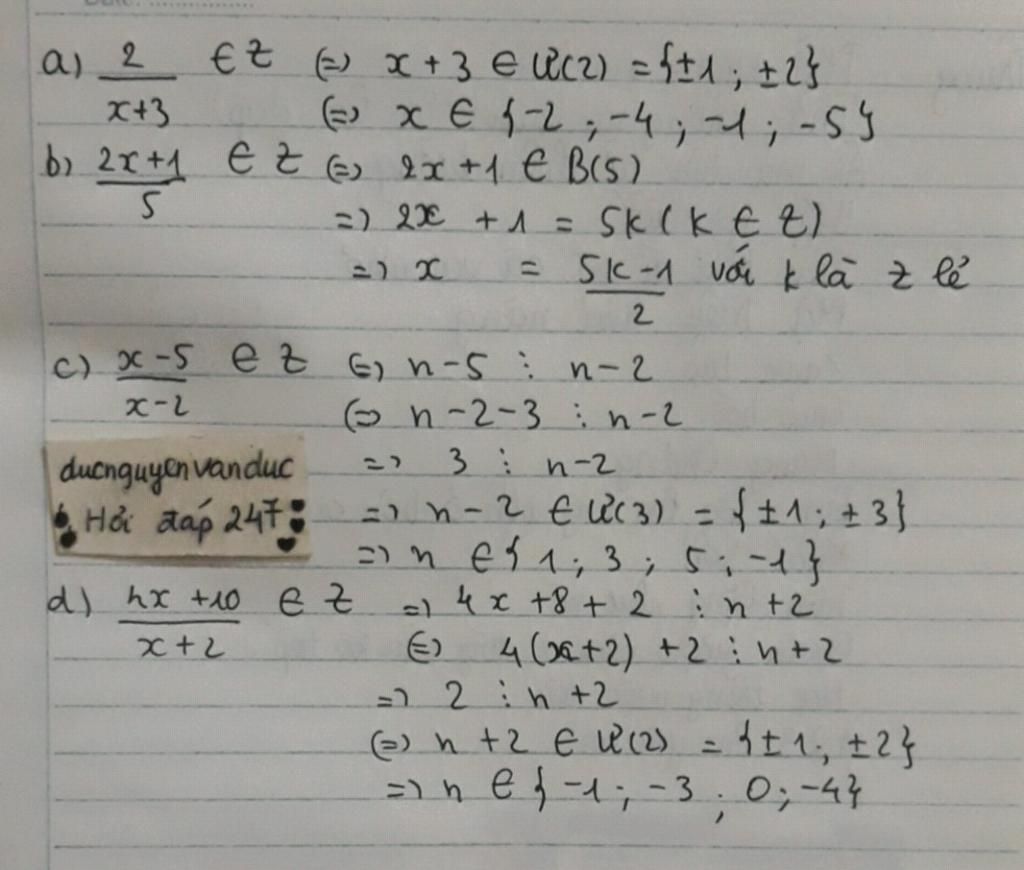 a) 2/(x+3) ∈ Z (=) x + 3 ∈ Ư(2) = {±1 ; ±2}
(=) x ∈ {-2 ; -4 ; -1 ; -5}
b) (2x+1)/5 ∈ Z (=) 2x + 1 ∈ B(5)
=) 2x + 1 = 5k (k ∈ Z)
=) x = (5k-1)/2 với k là Z lẻ
c) (x-5)/(x-2) ∈ Z (=) n-5 ⋮ n-2
(=) n-2-3 ⋮ n-2
=) 3 ⋮ n-2
=) n-2 ∈ Ư(3) = {±1 ; ±3}
=) n ∈ {1 ; 3 ; 5 ; -1}
ducnguyenvanduc
Hỏi đáp 247
d) (4x+10)/(x+2) ∈ Z =) 4x+8+2 ⋮ n+2
(=) 4(x+2) +2 ⋮ n+2
=) 2 ⋮ n+2
(=) n+2 ∈ Ư(2) = {±1 ; ±2}
=) n ∈ {-1 ; -3 ; 0 ; -4}